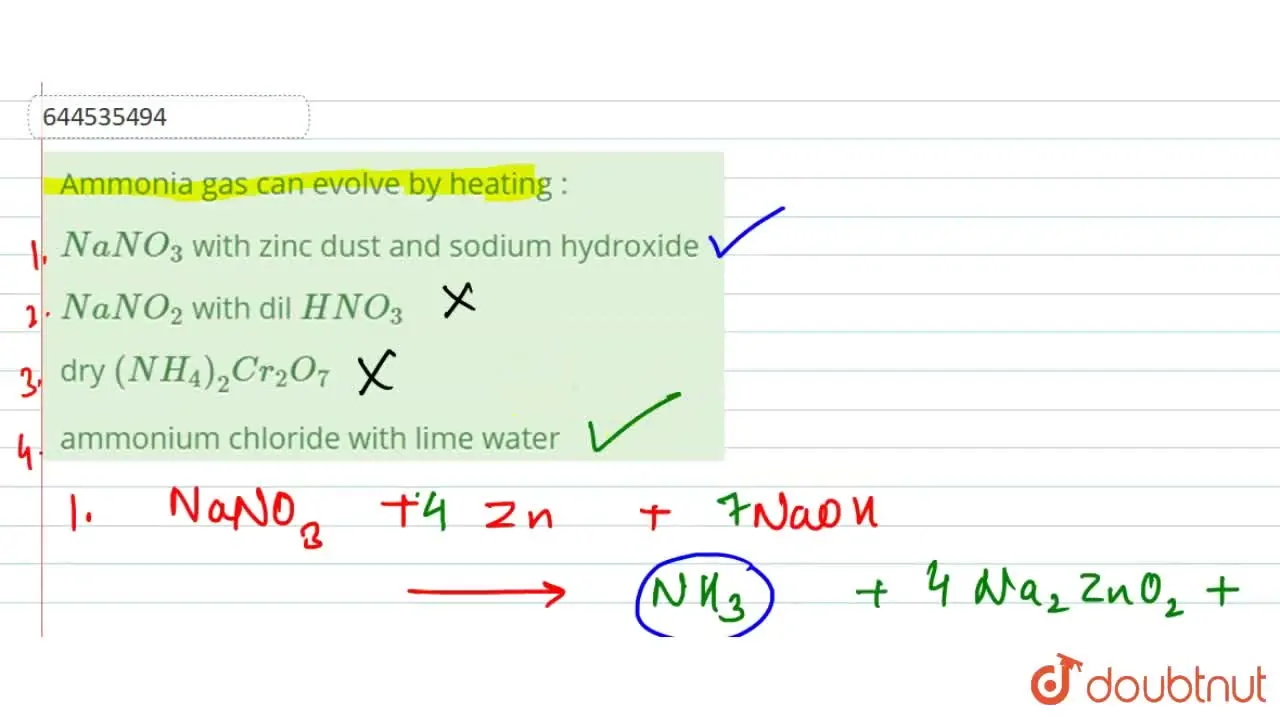 644535494
Ammonia gas can evolve by heating :
1. NaNO₃ with zinc dust and sodium hydroxide ✓
2. NaNO₂ with dil HNO₃ ✗
3. dry (NH₄)₂Cr₂O₇ ✗
4. ammonium chloride with lime water ✓
1. NaNO₃ + 4 Zn + 7NaOH
⟶ NH₃ + 4 Na₂ZnO₂ +
doubtnut